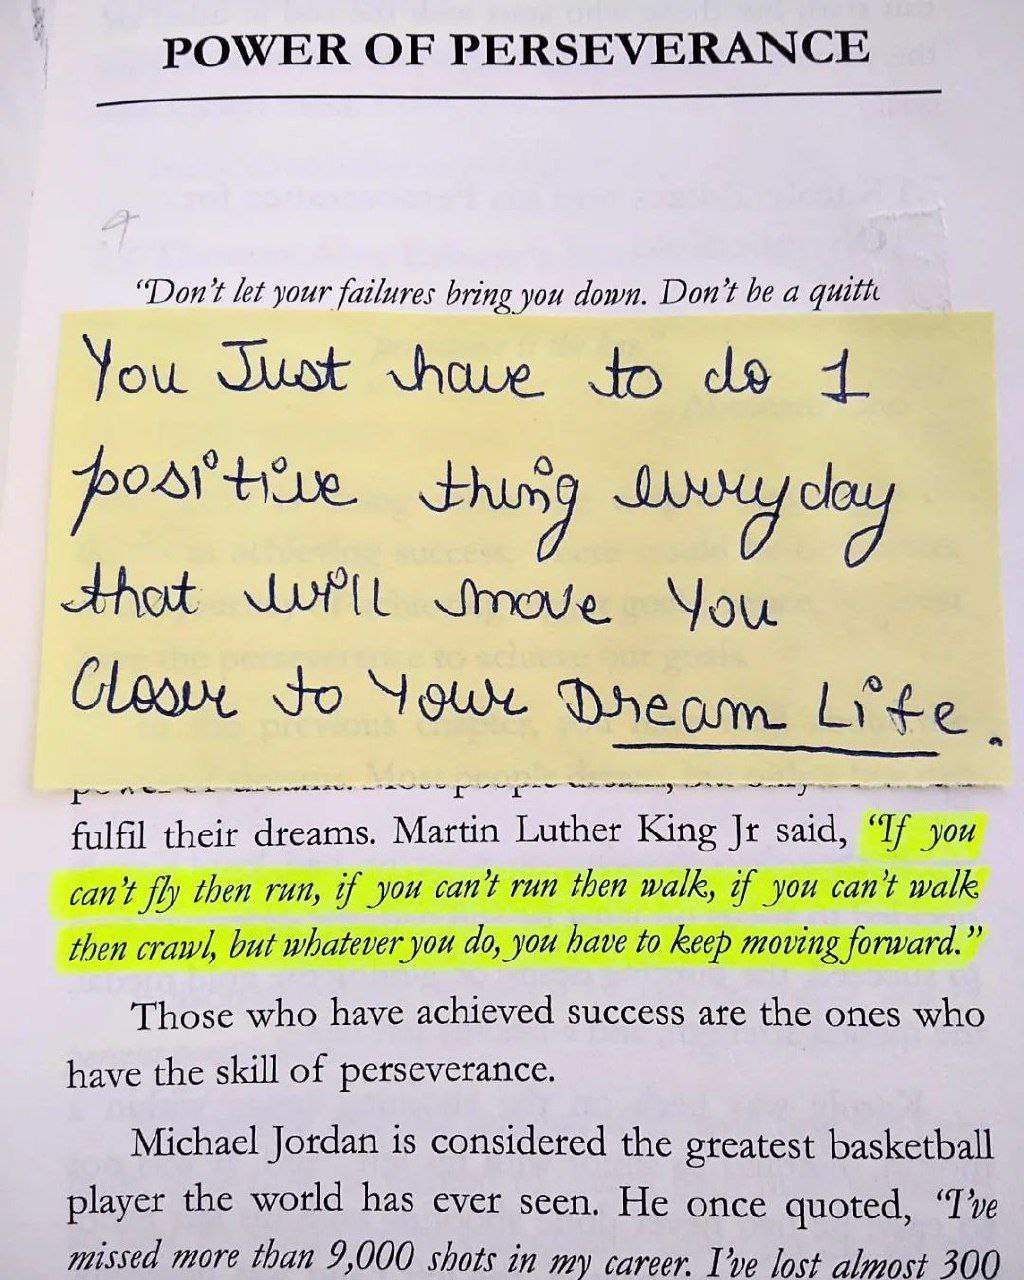 POWER OF PERSEVERANCE
9
"Don't let your failures bring you down. Don't be a
You Just have to do 1
positive thing everyday
that will move You
Closer to Your Dream Life.
fulfil their dreams. Martin Luther King Jr said, "If you
can't fly then run, if you can't run then walk, if you can't walk
then crawl, but whatever you do, you have to keep moving forward."
Those who have achieved success are the ones who
have the skill of perseverance.
Michael Jordan is considered the greatest basketball
player the world has ever seen. He once quoted, "I've
missed more than 9,000 shots in my career. I've lost almost 300